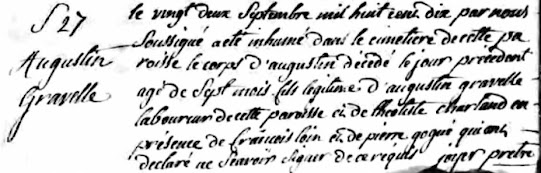 S 27
Augustin
Gravelle
le vingt deux Septembre mil huit cens dix par nous
Soussigné a eté inhumé dans le cimetiere de cette pa
roisse le corps d'augustin décédé le jour précédent
agé de Sept mois fils legitime d'augustin gravelle
laboureur de cette paroisse et de theotiste charland en
présence de françois loin et de pierre gogué qui ont
declaré ne Scavoir signer de ce requis pretre